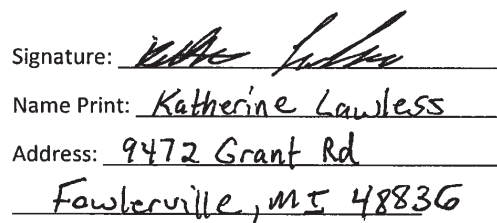 Signature:
Name Print: Katherine Lawless
Address: 9472 Grant Rd
Fowlerville, MI 48836